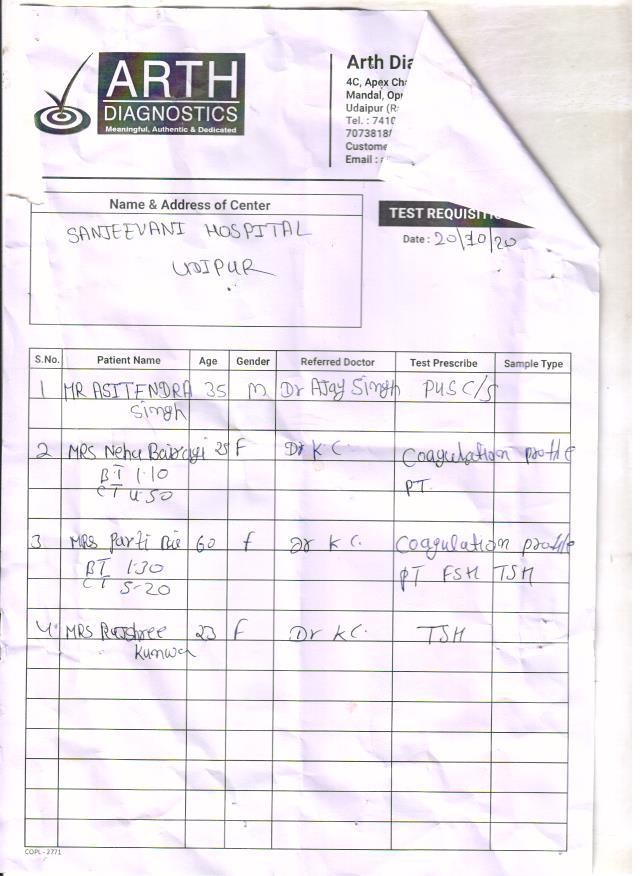 ARTH
DIAGNOSTICS
Meaningful, Authentic & Dedicated
Arth Dia
4C, Apex Ch
Mandal, Opp
Udaipur (R
Tel. : 741
7073818
Custome
Email :
Name & Address of Center
SANJEEVANI HOSPITAL
UDIPUR
TEST REQUISITI
Date : 20/10/20
S.No. Patient Name Age Gender Referred Doctor Test Prescribe Sample Type
1 MR ASITENDRA 35 M Dr AJay Singh PUS C/S
Singh
2 MRS Neha Bairagi 25 F Dr K C. Coagulation profile
BT 1.10 PT.
CT 4.50
3 MRS Parti 60 f Dr K C. Coagulation profile
BT 1.30 PT FSH TSH
CT 5-20
4 MRS Rajshree 23 F Dr KC. TSH
Kunwa
COPL - 2771